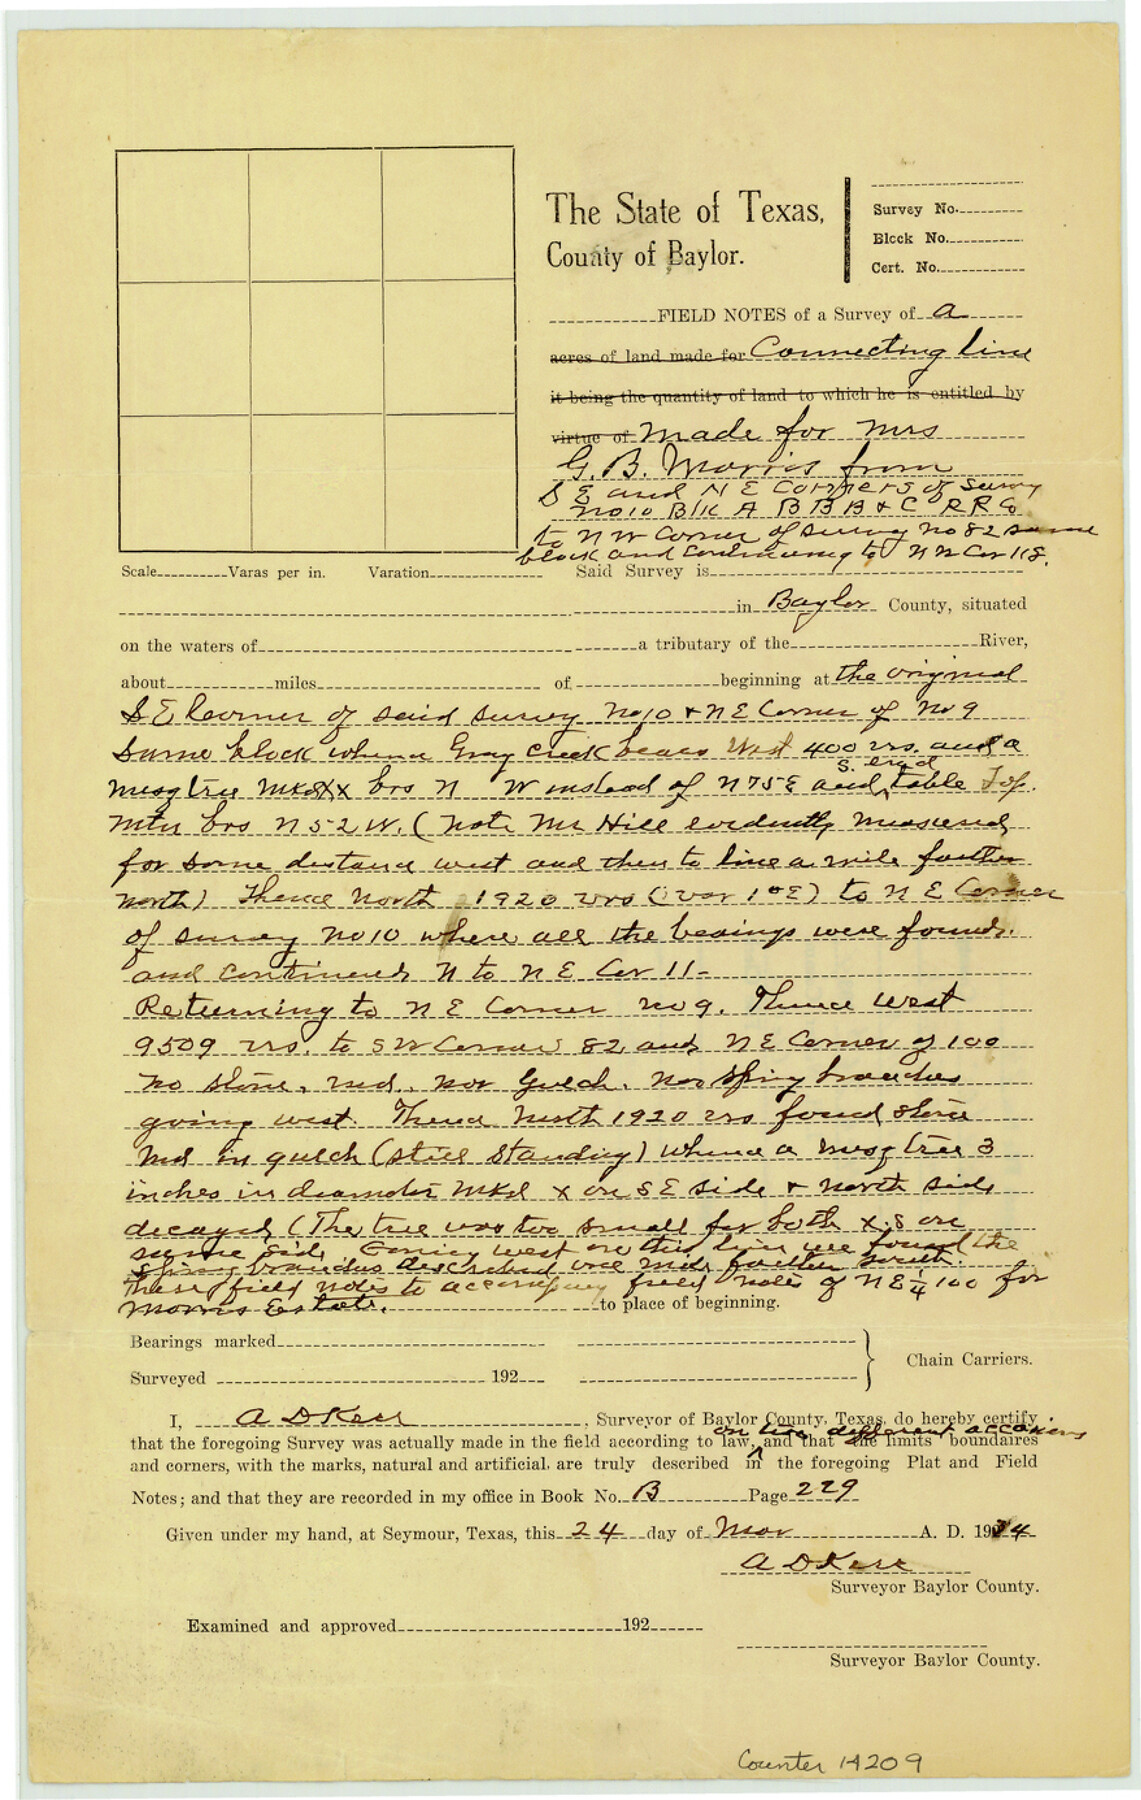 The State of Texas,
County of Baylor.
Survey No.
Block No.
Cert. No.
FIELD NOTES of a Survey of a
acres of land made for Connecting line
it being the quantity of land to which he is entitled by
virtue of made for Mrs
G. B. Morris from
S E and N E Corners of Survey
No 10 Blk A B B B & C RR Co
to N W Corner of Survey No 82 same
block and continuing to N W Cor 118.
Scale Varas per in. Varation
Said Survey is
in Baylor County, situated
on the waters of a tributary of the River,
about miles of beginning at the original
S E Corner of said survey No 10 & N E Corner of No 9
Same block whence Gray Creek bears West 400 vrs. and a
mesq tree mkd X x brs N W instead of N 75 E and S. end table Top
Mtn brs N 52 W. (Note Mr Hill evidently measured
for some distance west and then to line a mile farther
north) Thence North 1920 vrs (var 10 E) to N E Corner
of survey No 10 where all the bearings were found.
and continued N to N E Cor 11-
Returning to N E Corner No 9. Thence West
9509 vrs. to S W Corner 82 and N E Corner of 100
no stone, md., nor Gulch. nor Spring branches
going west. Thence North 1920 vrs found stone
Md in gulch (still standing) whence a mesq tree 3
inches in diameter Mkd x on S E side & North side
decayed (The tree was too small for both x.s on
same side Going west on this line we found the
Spring branches described one mile farther south.
These field notes to accompany field notes of N E 1/4 100 for
Morris Estate. to place of beginning.
Bearings marked
Chain Carriers.
Surveyed 192
I, A D Kerr, Surveyor of Baylor County, Texas, do hereby certify
on two different occasions
that the foregoing Survey was actually made in the field according to law, and that the limits boundaires
and corners, with the marks, natural and artificial, are truly described in the foregoing Plat and Field
Notes; and that they are recorded in my office in Book No. B Page 229
Given under my hand, at Seymour, Texas, this 24 day of Mar A. D. 1934
A D Kerr
Surveyor Baylor County.
Examined and approved 192
Surveyor Baylor County.
Counter 14209